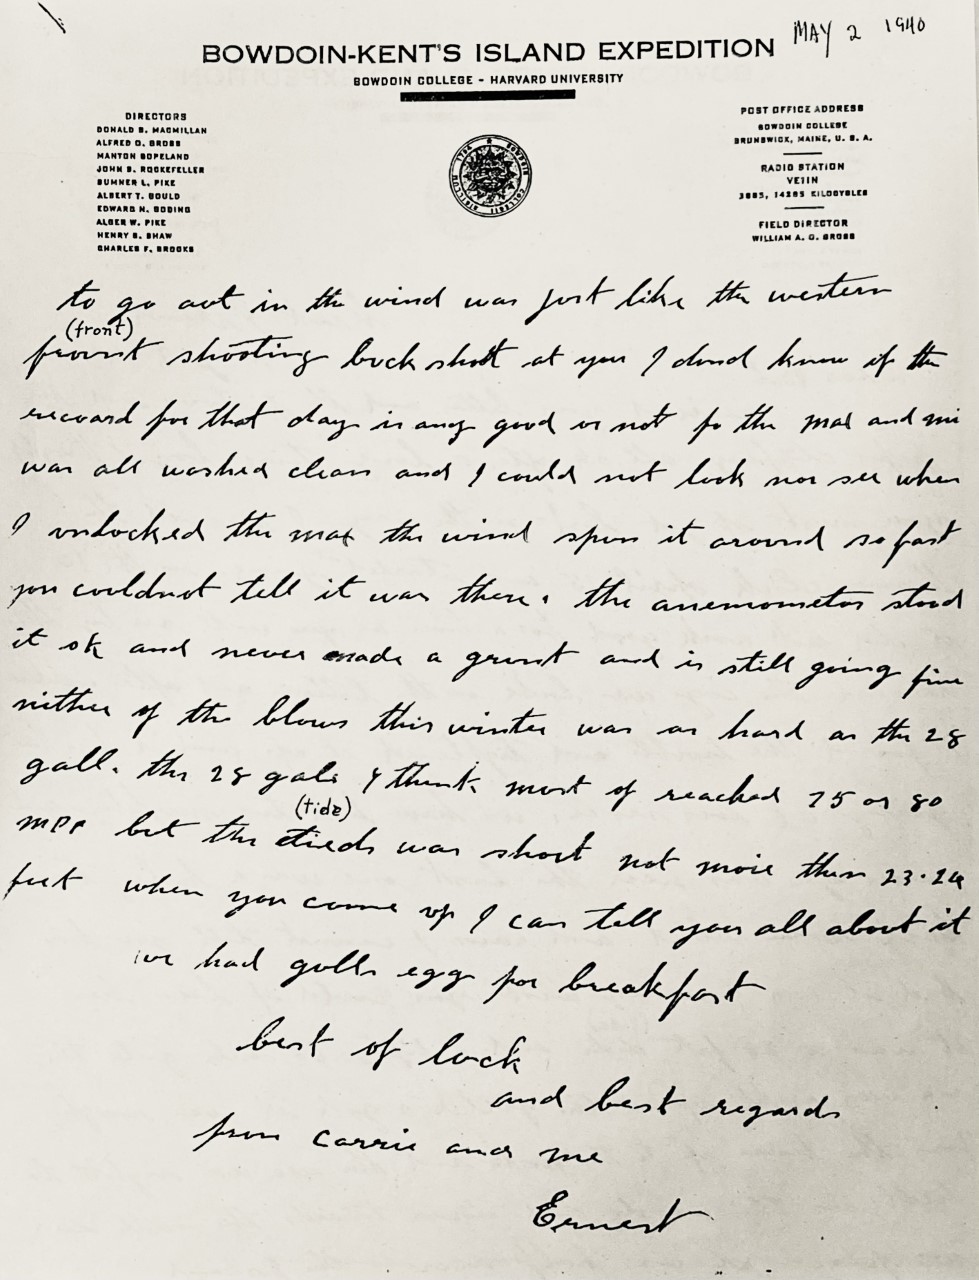 MAY 2 1940
BOWDOIN-KENT'S ISLAND EXPEDITION
BOWDOIN COLLEGE - HARVARD UNIVERSITY
DIRECTORS
DONALD B. MACMILLAN
ALFRED O. GROSS
MANTON COPELAND
JOHN S. ROCKEFELLER
SUMNER L. PIKE
ALBERT T. GOULD
EDWARD H. BODING
ALGER W. PIKE
HENRY S. SHAW
CHARLES F. BROOKS
POST OFFICE ADDRESS
BOWDOIN COLLEGE
BRUNSWICK, MAINE, U. S. A.
RADIO STATION
VE1IN
3885, 14285 KILOCYCLES
FIELD DIRECTOR
WILLIAM A. O. GROSS
to go out in the wind was just like the western
(front)
frount shooting buck shot at you I dond know if the
reccoard for that day is any good or not fo the max and mi
was all washed clean and I could not look nor see when
I unlocked the max the wind spun it around so fast
you couldnot tell it was there. the anemometor stood
it ok and never made a grunt and is still going fine
nither of the blows this winter was as hard as the 28
gall. the 28 gale I think most of reached 75 or 80
(tide)
mPr but the tieds was short not more then 23.24
feet when you come up I can tell you all about it
we had gulls egg for breakfast
best of luck
and best regards
from Carrie and me
Ernest